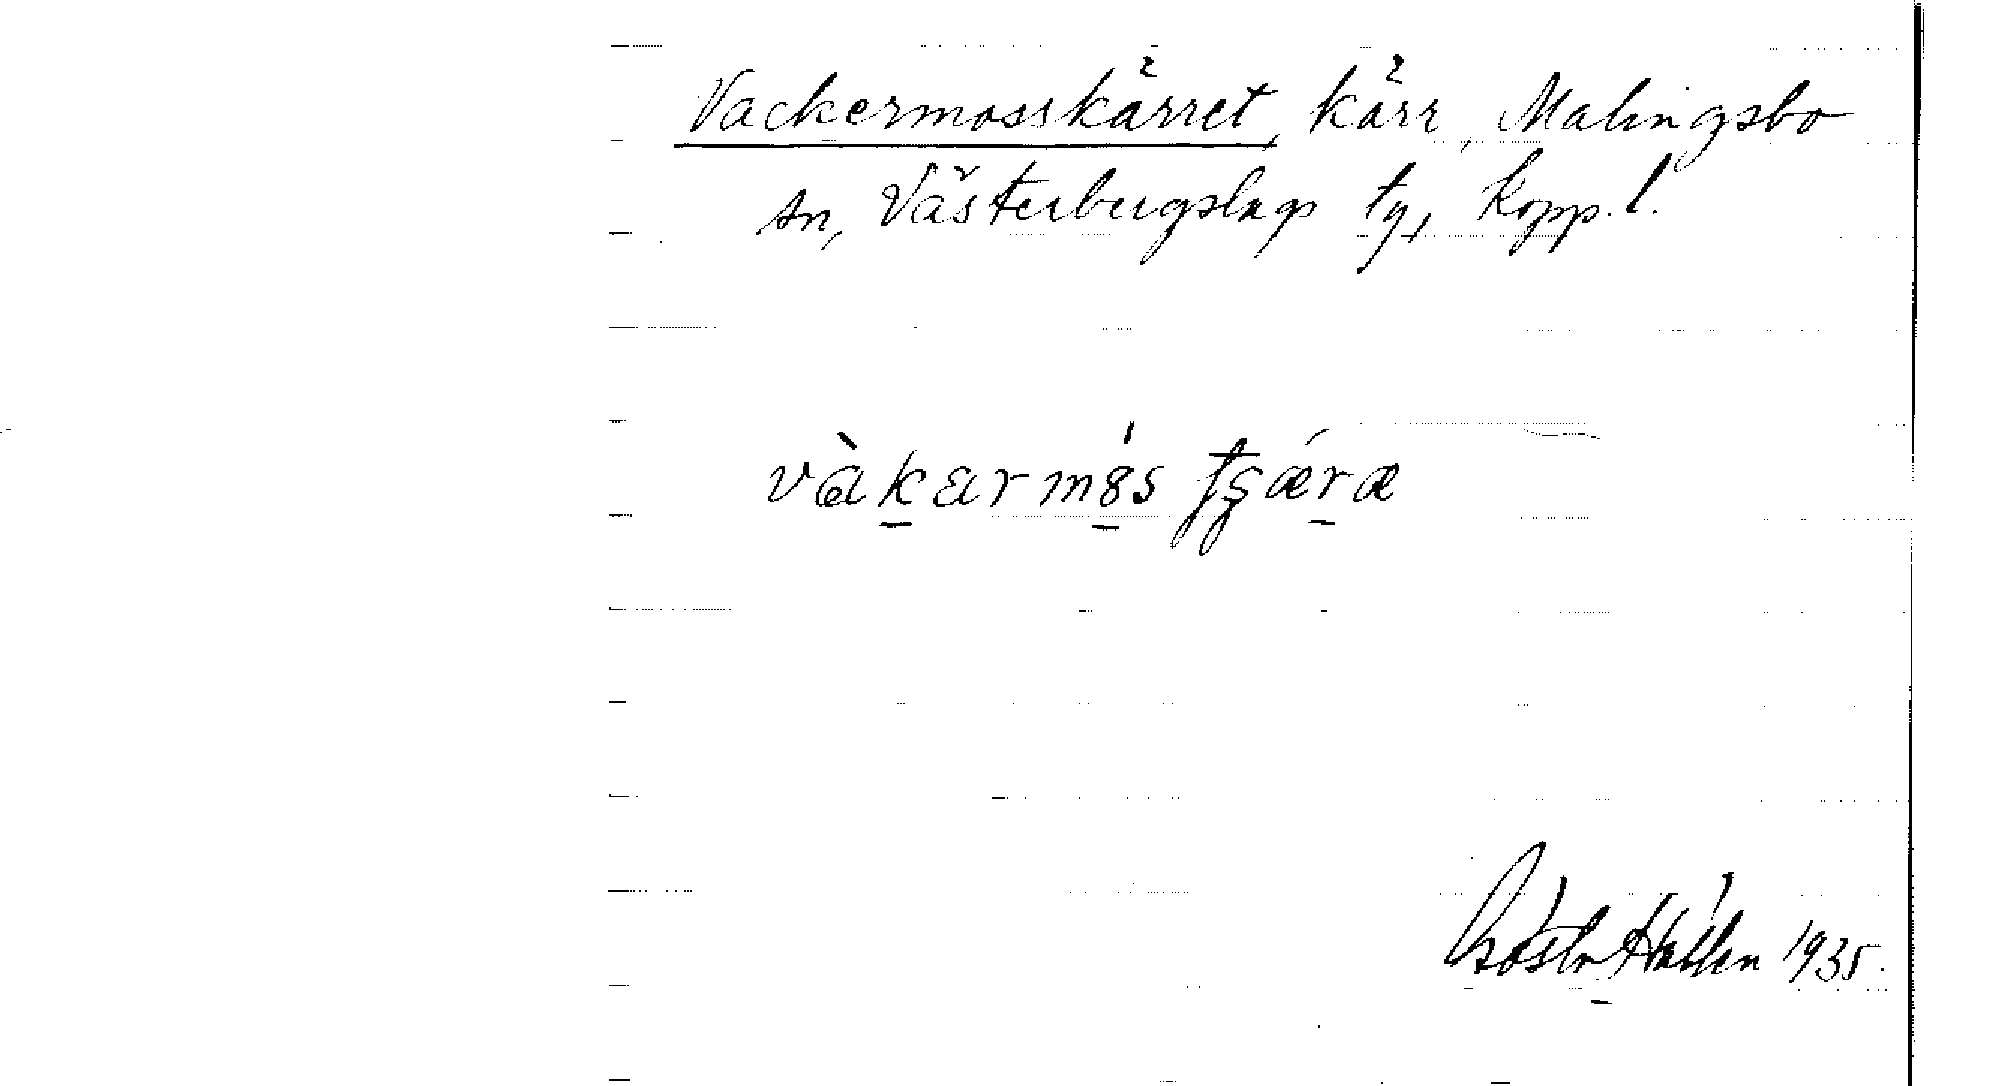 Vackermosskärret, kärr, Malingsbo
sn, Västerbergslags tg, Kopp. l.
vàkarmós
Gösta Hallén 1935.